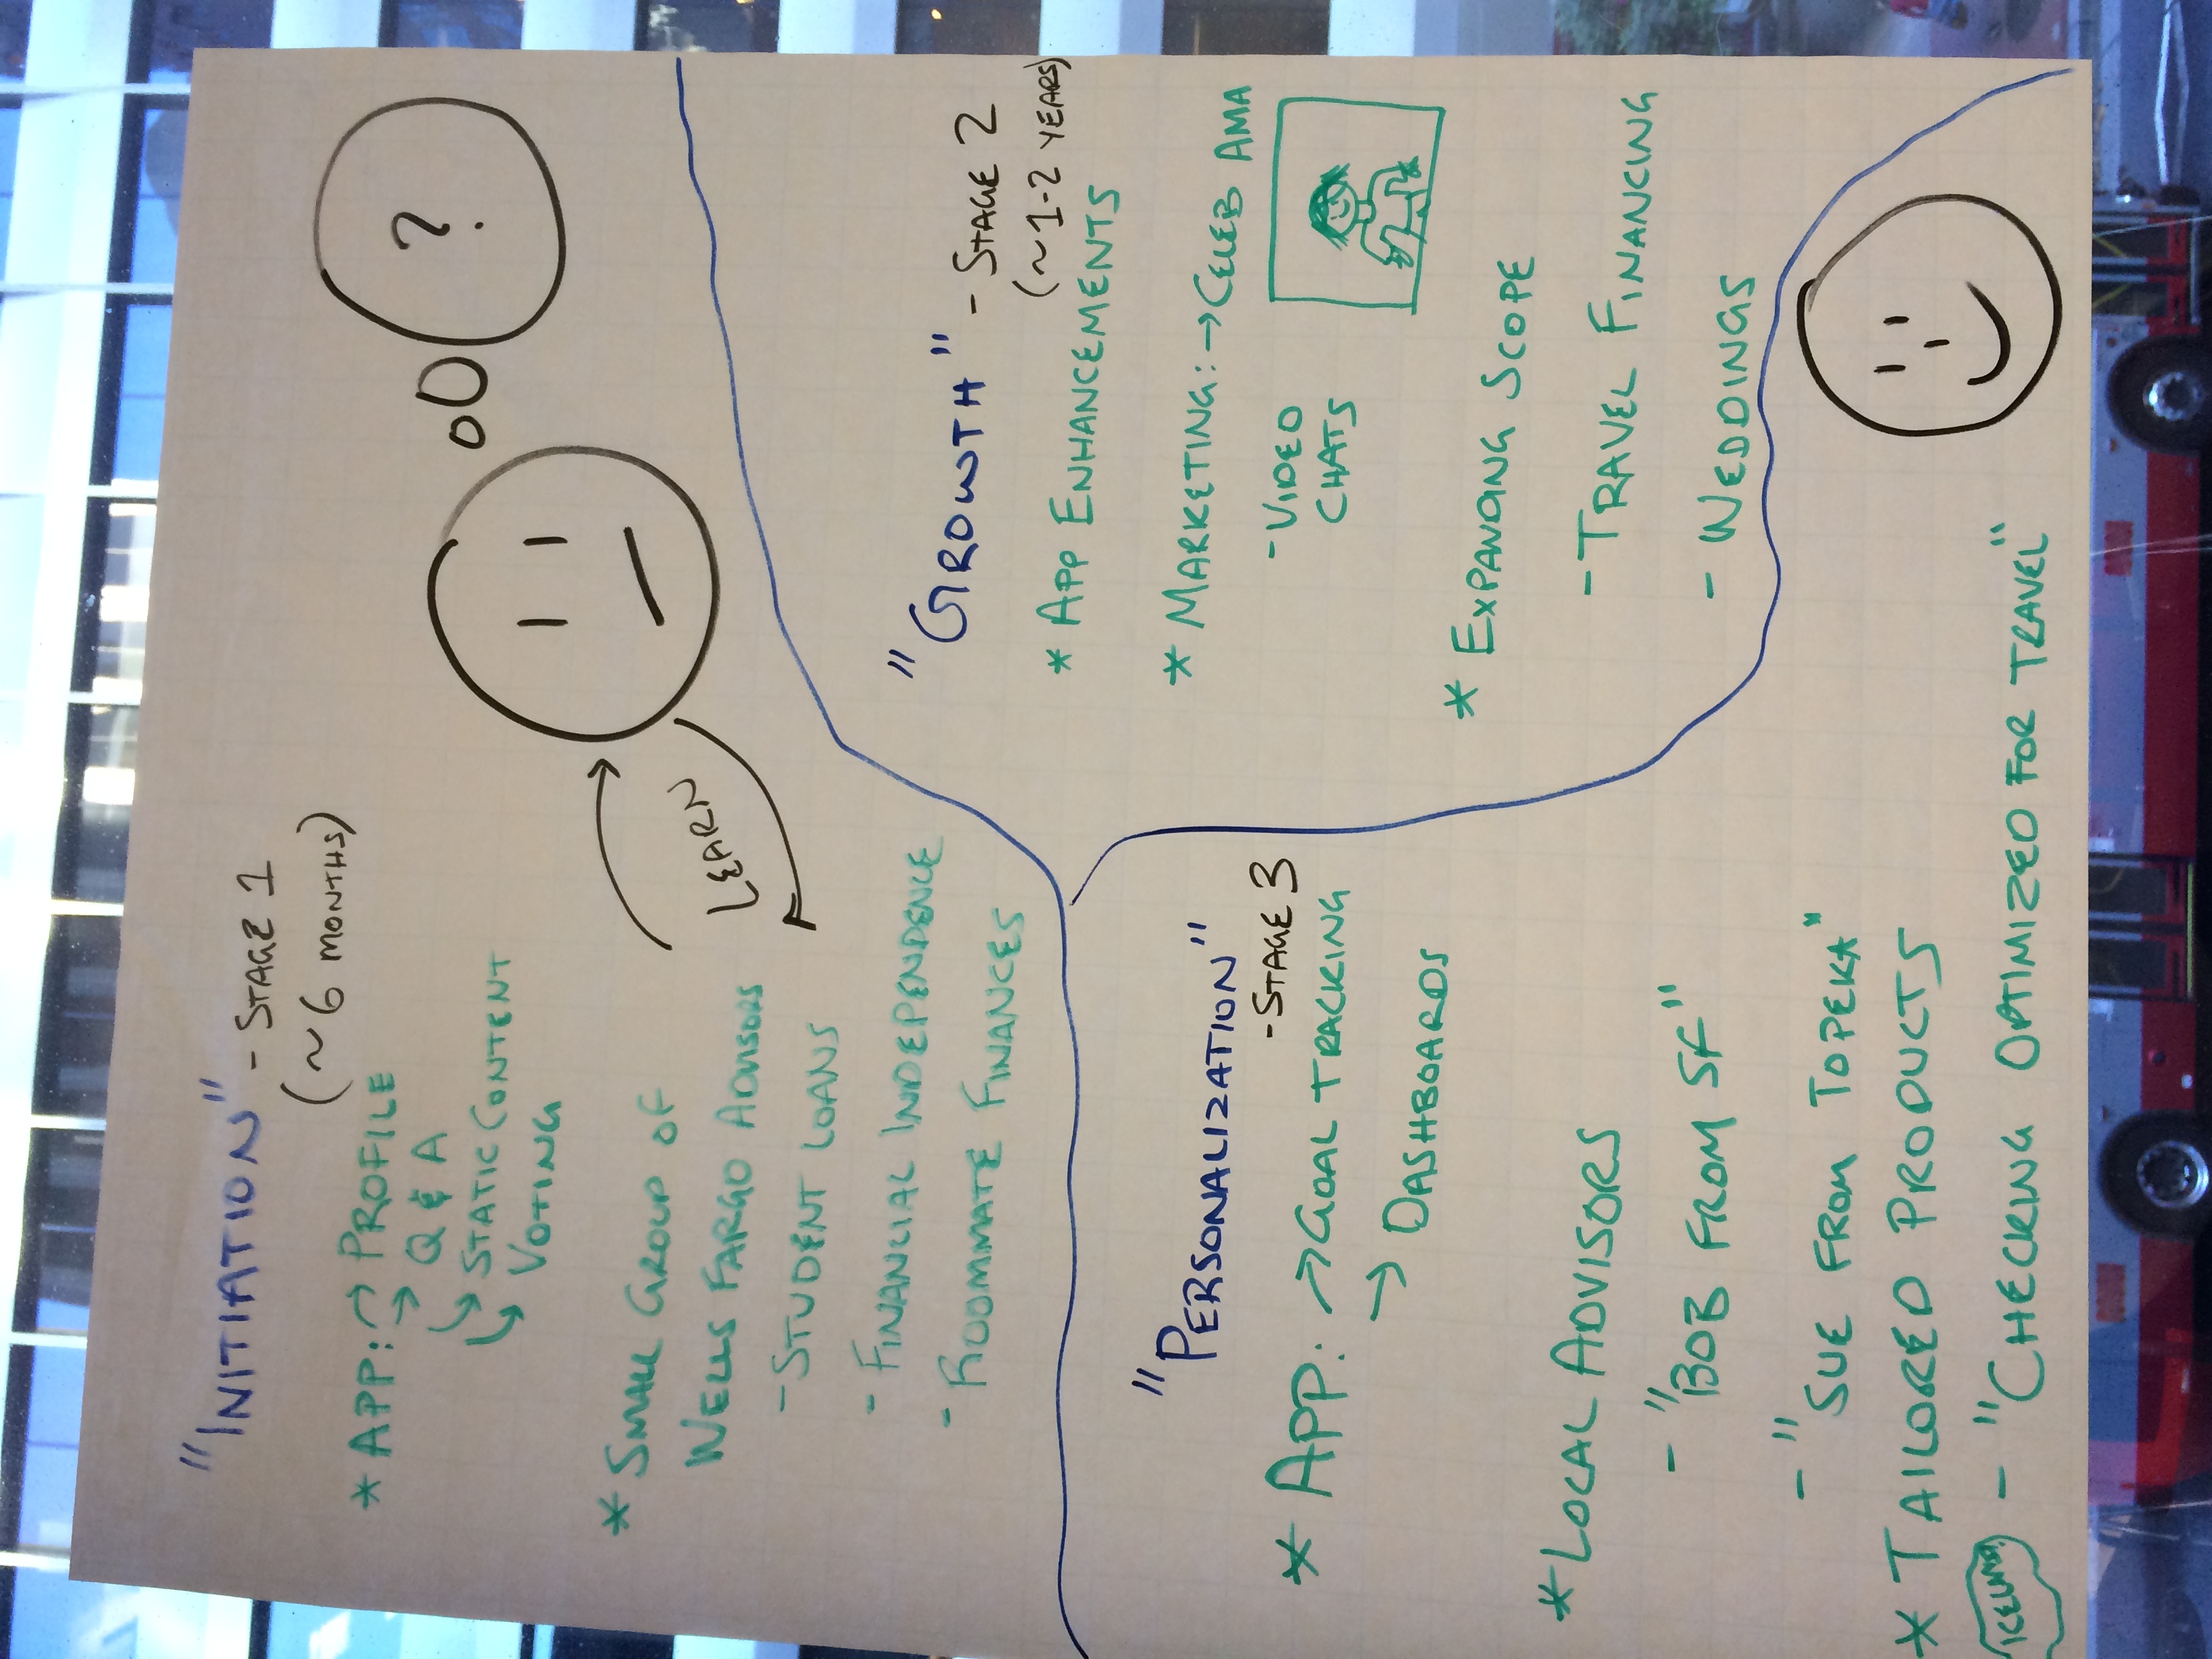 "INITIATION" - STAGE 1
(~6 MONTHS)
* APP: → PROFILE
→ Q & A
→ STATIC CONTENT
→ VOTING
* SMALL GROUP OF
WELLS FARGO ADVISORS
- STUDENT LOANS
- FINANCIAL INDEPENDENCE
- ROOMMATE FINANCES
LEARN
?
"GROWTH" - STAGE 2
(~1-2 YEARS)
* APP ENHANCEMENTS
* MARKETING: → CELEB AMA
- VIDEO
CHATS
* EXPANDING SCOPE
- TRAVEL FINANCING
- WEDDINGS
"PERSONALIZATION"
- STAGE 3
* APP: → GOAL TRACKING
→ DASHBOARDS
* LOCAL ADVISORS
- "BOB FROM SF"
- "SUE FROM TOPEKA"
* TAILORED PRODUCTS
- "CHECKING OPTIMIZED FOR TRAVEL"